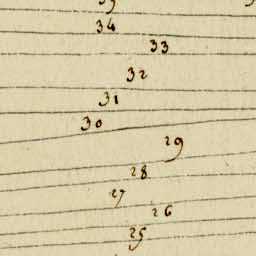 34
33
32
31
30
29
28
27
26
25